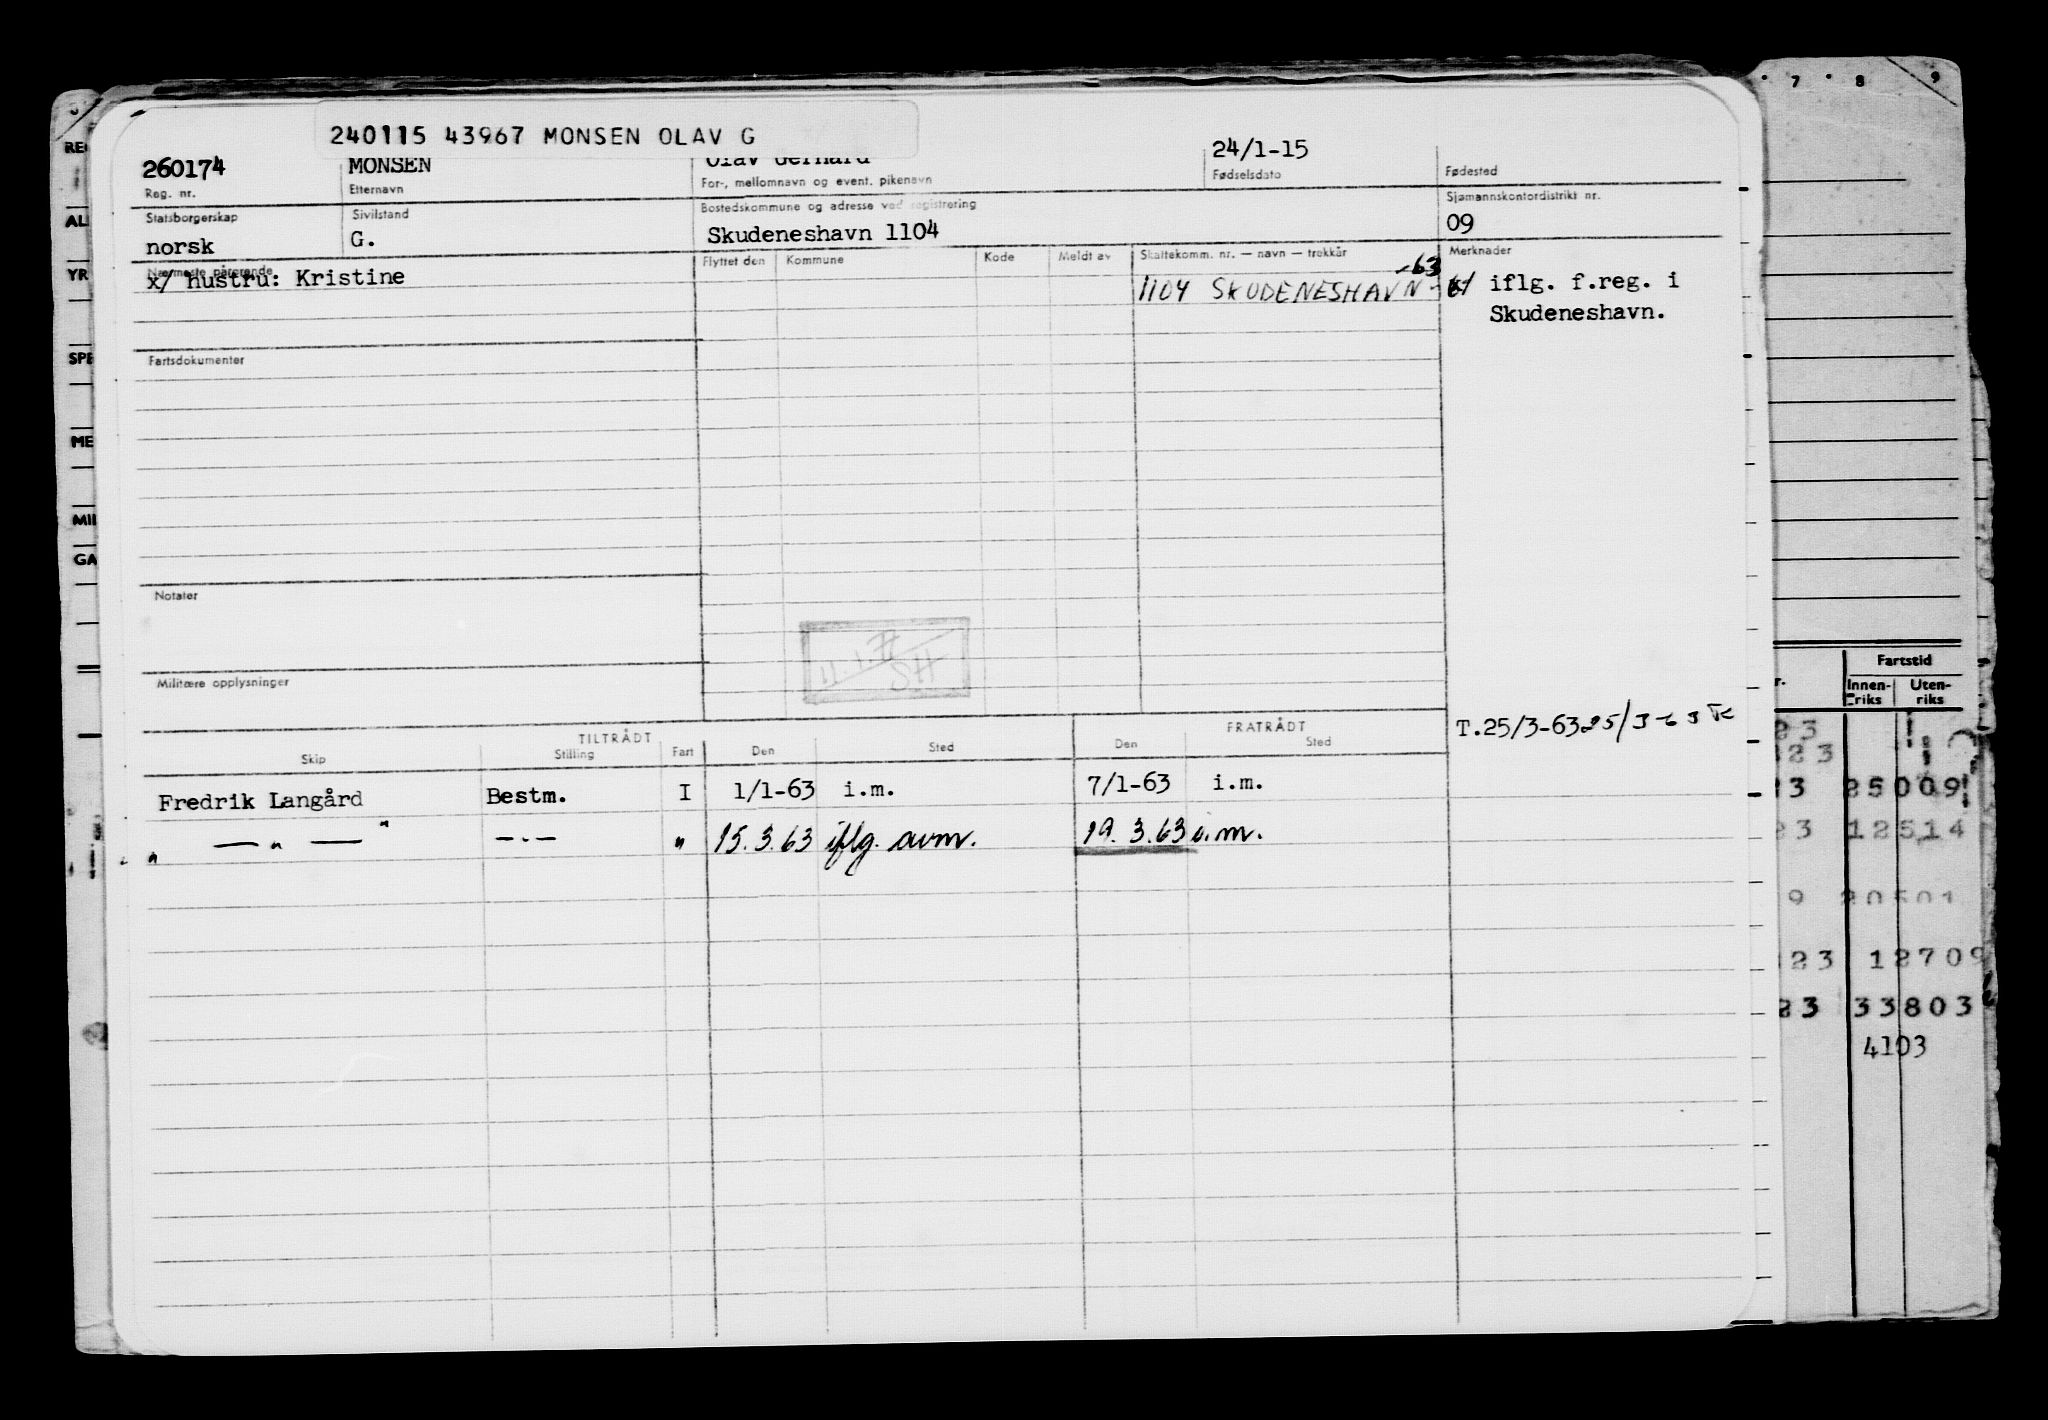 7 8 9
240115 43967 MONSEN OLAV G
260174 MONSEN Olav Gerhard 24/1-15
Reg. nr. Etternavn For-, mellomnavn og event. pikenavn Fødselsdato Fødested
Statsborgerskap Sivilstand Bostedskommune og adresse ved registrering Sjømannskontordistrikt nr.
norsk G. Skudeneshavn 1104 09
Nærmeste pårørende Flyttet den Kommune Kode Meldt av Skattekomm. nr. — navn — trekkår Merknader
x/ hustru: Kristine 1104 SKUDENESHAVN -63 x/ iflg. f.reg. i
Skudeneshavn.
Fartsdokumenter
Notater
Militære opplysninger
T.25/3-63
TILTRÅDT FRATRÅDT
Skip Stilling Fart Den Sted Den Sted
Fredrik Langård Bestm. I 1/1-63 i.m. 7/1-63 i.m.
" — " — " — . — " 15.3.63 iflg. avm. 19.3.63 i.m.
REG
AL
YR
SPE
ME
MIL
GA
Fartstid
Innenriks Utenriks
23
323
23 25009
23 12514
9 20501
123 12709
23 33803
4103